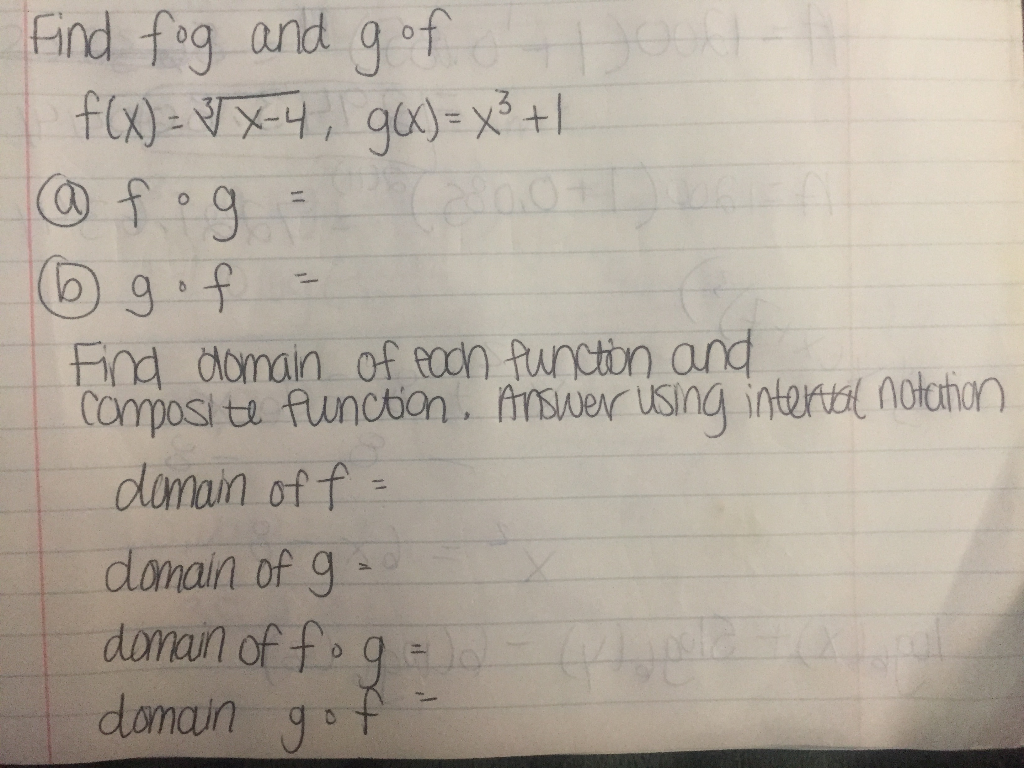 Find f∘g and g∘f
f(x) = ∛x-4, g(x) = x³ + 1
ⓐ f ∘ g =
ⓑ g ∘ f =
Find domain of each function and
composite function. Answer using interval notation
domain of f =
domain of g =
domain of f ∘ g =
domain g ∘ f =